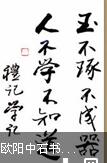 玉不琢不成器
人不学不知道
礼记学记
欧阳中石书...